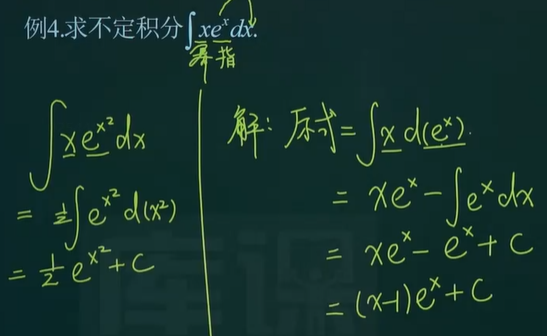 例4.求不定积分∫xeˣdx.
幂 指
∫xe^{x²}dx
= ½∫e^{x²}d(x²)
= ½e^{x²}+C
解：原式=∫x d(eˣ).
= xeˣ-∫eˣdx
= xeˣ-eˣ+C
= (x-1)eˣ+C
库课